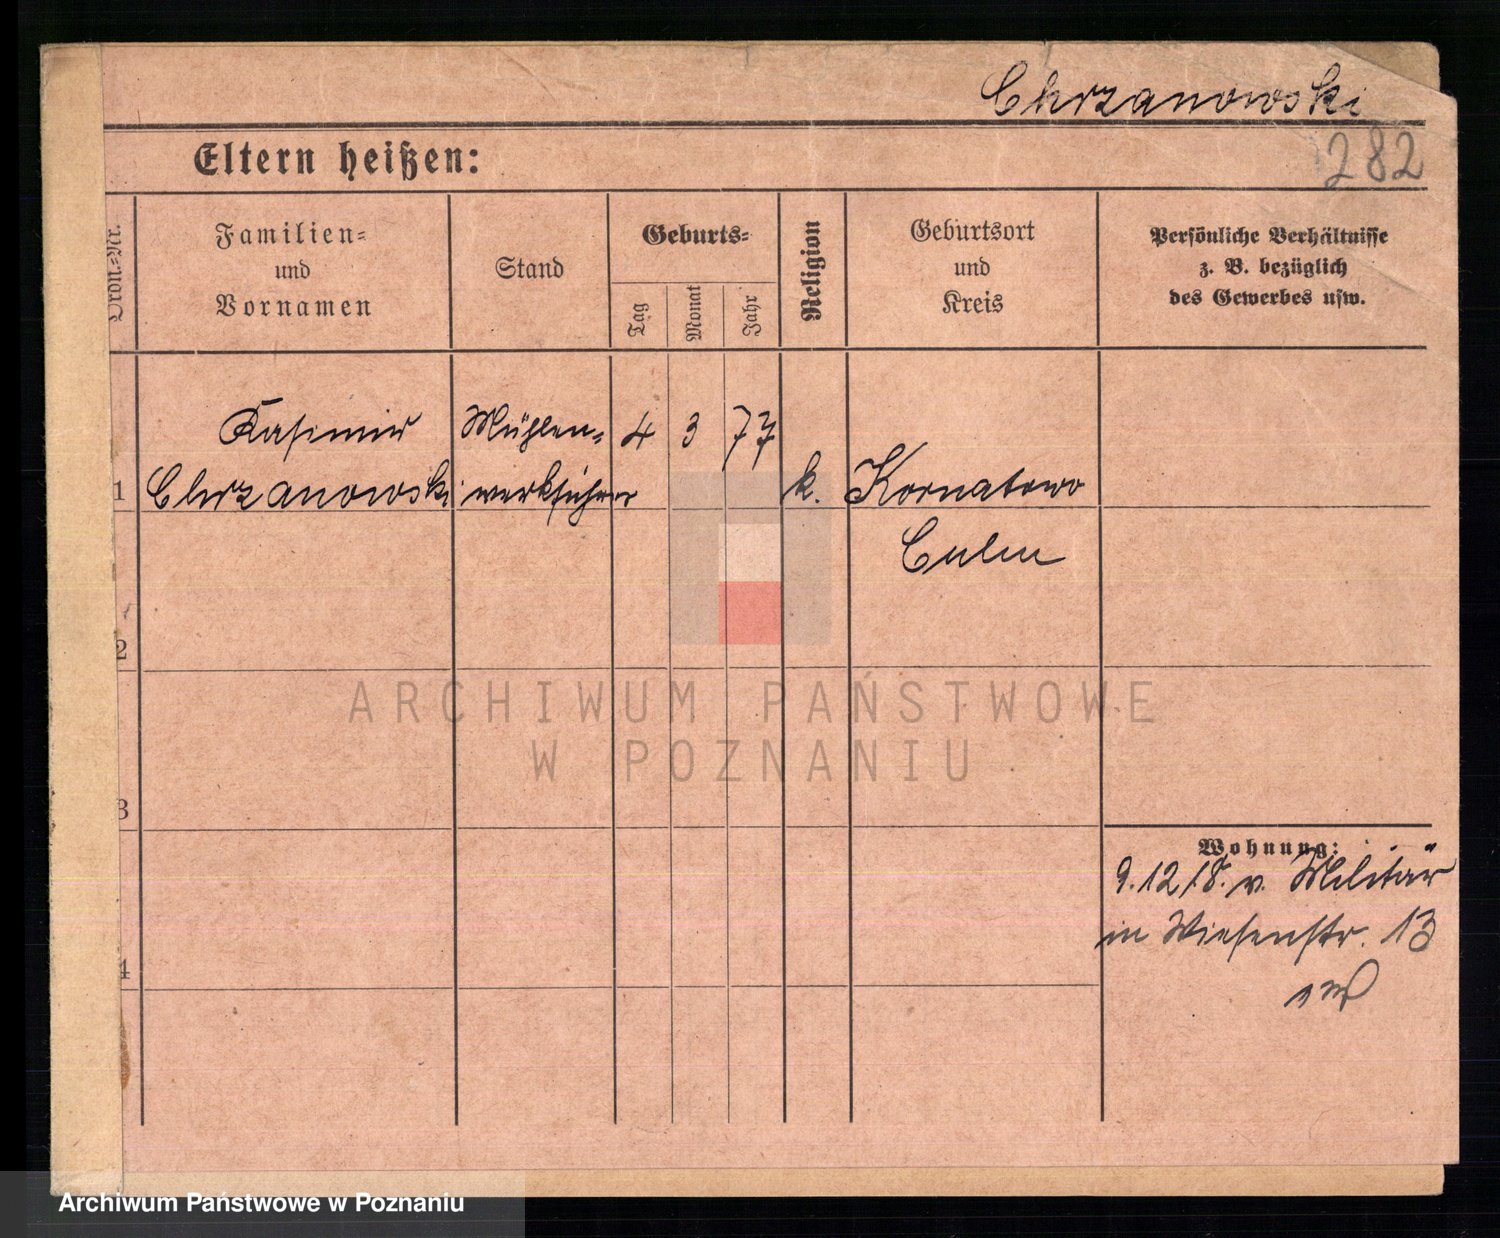 Chrzanowski
282
Eltern heißen:
Ordn.-Nr.
Familien-
und
Vornamen
Stand
Geburts-
Tag
Monat
Jahr
Religion
Geburtsort
und
Kreis
Persönliche Verhältnisse
z. B. bezüglich
des Gewerbes usw.
1
Kasimir
Chrzanowski
Mühlen-
werkführer
4 3 77
k.
Kornatowo
Culm
2
3
4
Wohnung:
9.12 18. v. Militär
in Wiesenstr. 13
ARCHIWUM PAŃSTWOWE
W POZNANIU
Archiwum Państwowe w Poznaniu